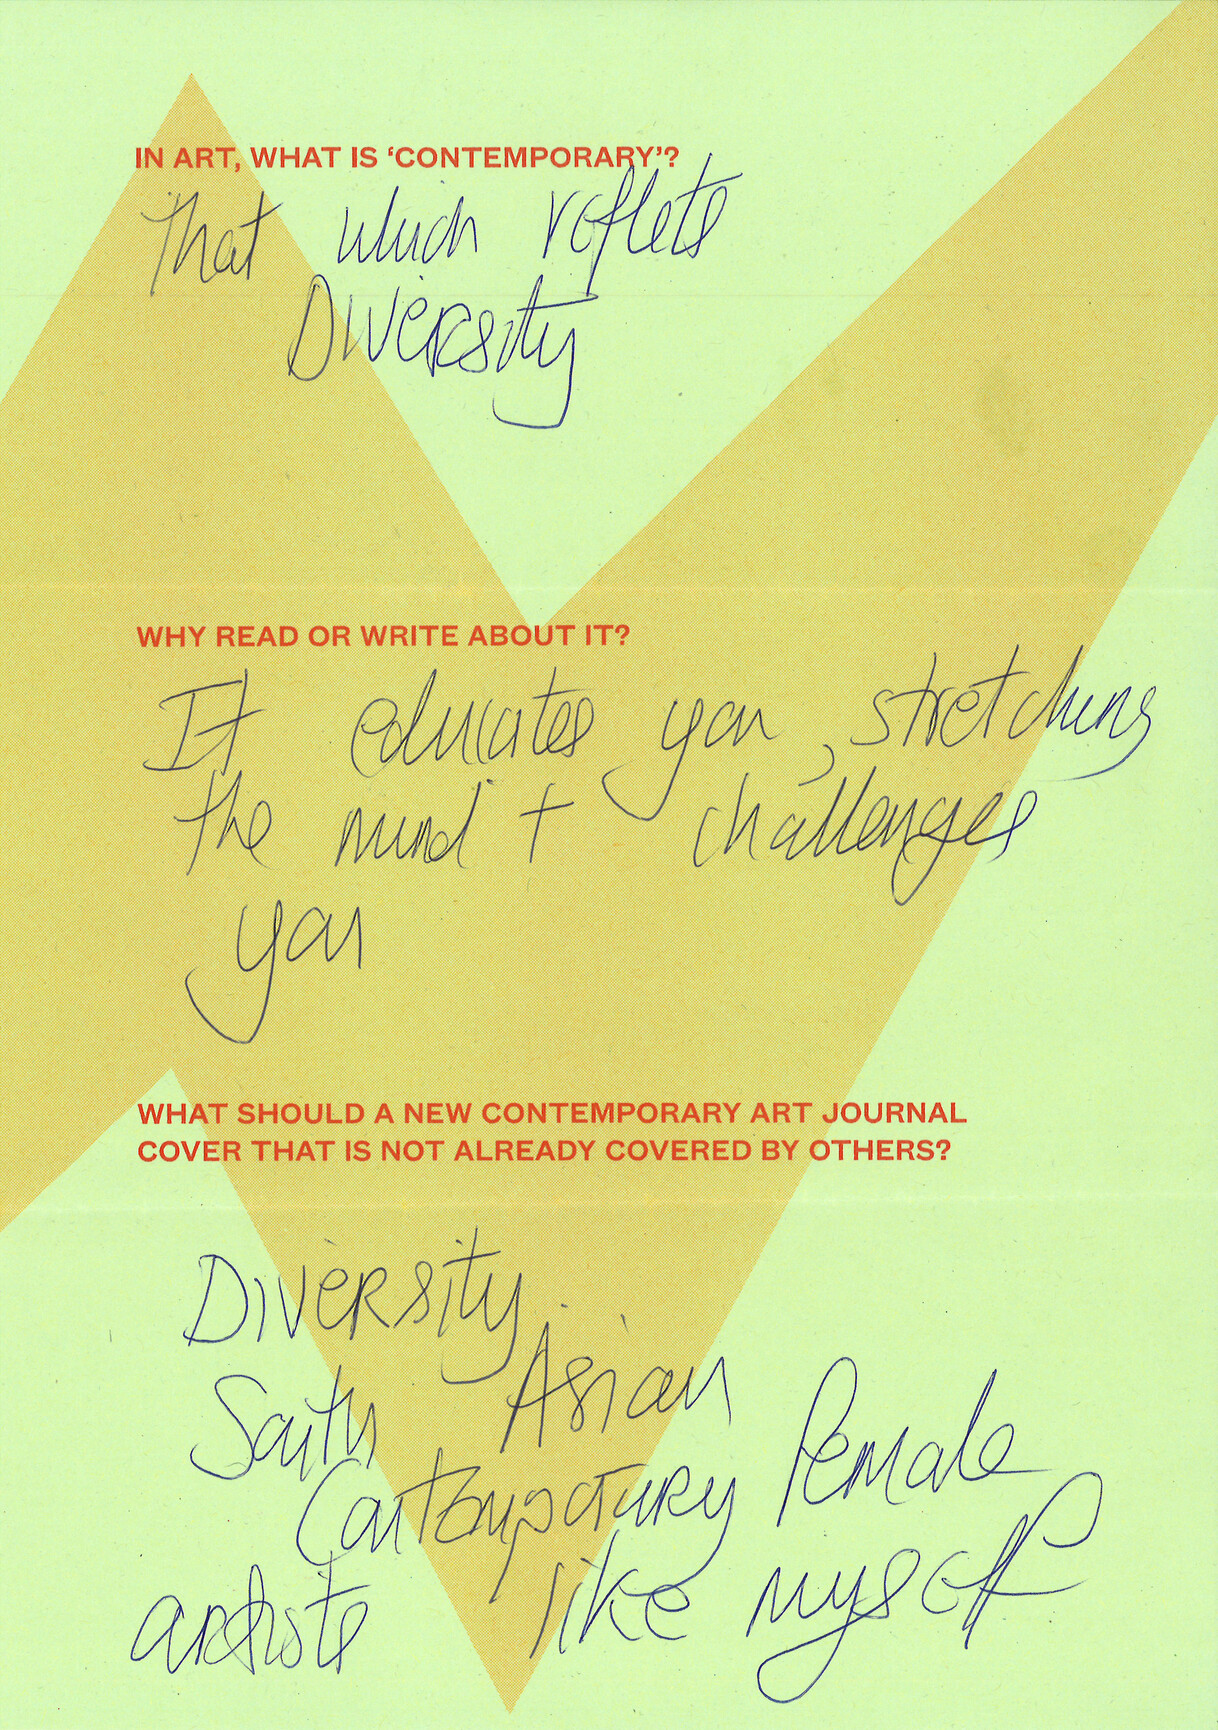 IN ART, WHAT IS ‘CONTEMPORARY’?
That which reflets
Diversity
WHY READ OR WRITE ABOUT IT?
It educates you, stretching
the mind + challenges
you
WHAT SHOULD A NEW CONTEMPORARY ART JOURNAL
COVER THAT IS NOT ALREADY COVERED BY OTHERS?
Diversity.
South Asian
Contemporary female
artists like myself